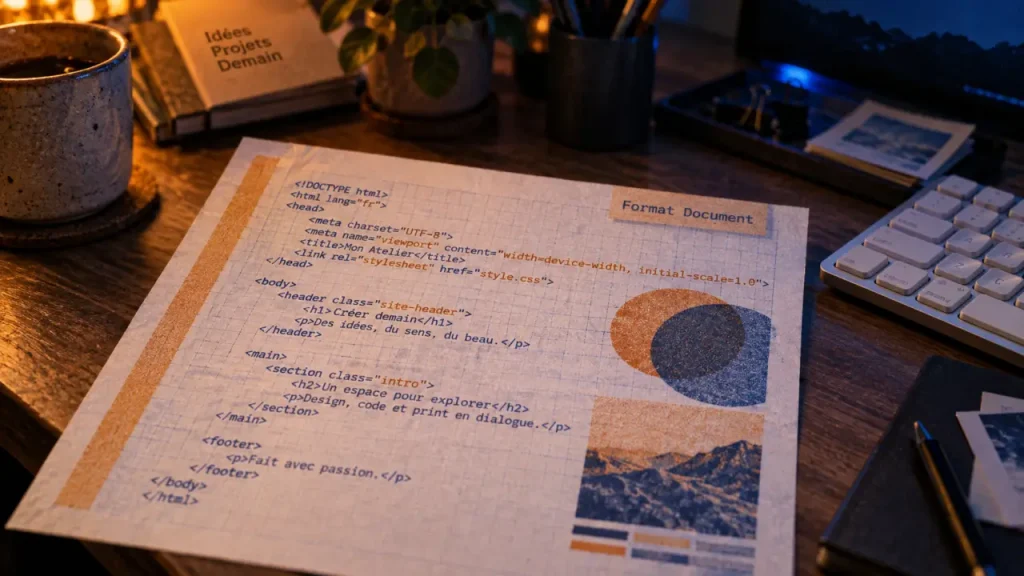 Idées
Projets
Demain
Format Document
<!DOCTYPE html>
<html lang="fr">
<head>
<meta charset="UTF-8">
<meta name="viewport" content="width=device-width, initial-scale=1.0">
<title>Mon Atelier</title>
<link rel="stylesheet" href="style.css">
</head>
<body>
<header class="site-header">
<h1>Créer demain</h1>
<p>Des idées, du sens, du beau.</p>
</header>
<main>
<section class="intro">
<h2>Un espace pour explorer</h2>
<p>Design, code et print en dialogue.</p>
</section>
</main>
<footer>
<p>Fait avec passion.</p>
</footer>
</body>
</html>